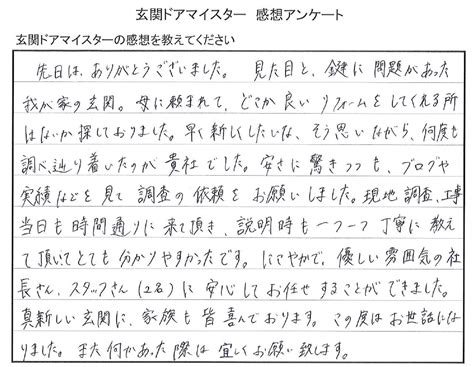 玄関ドアマイスター　感想アンケート
玄関ドアマイスターの感想を教えてください
先日は、ありがとうございました。　見た目と、鍵に問題があった
我が家の玄関。母に頼まれて、どこか良いリフォームをしてくれる所
はないか探しておりました。早く新しくしたいな、そう思いながら、何度も
調べ、辿り着いたのが貴社でした。安さに驚きつつも、ブログや
実績などを見て調査の依頼をお願いしました。現地調査、工事
当日も時間通りに来て頂き、説明時も一つ一つ丁寧に教え
て頂いてとても分かりやすかったです。にこやかで、優しい雰囲気の社
長さん、スタッフさん(2名)に安心してお任せすることができました。
真新しい玄関に、家族も皆喜んでおります。この度はお世話にな
りました。また何かあった際は宜しくお願い致します。